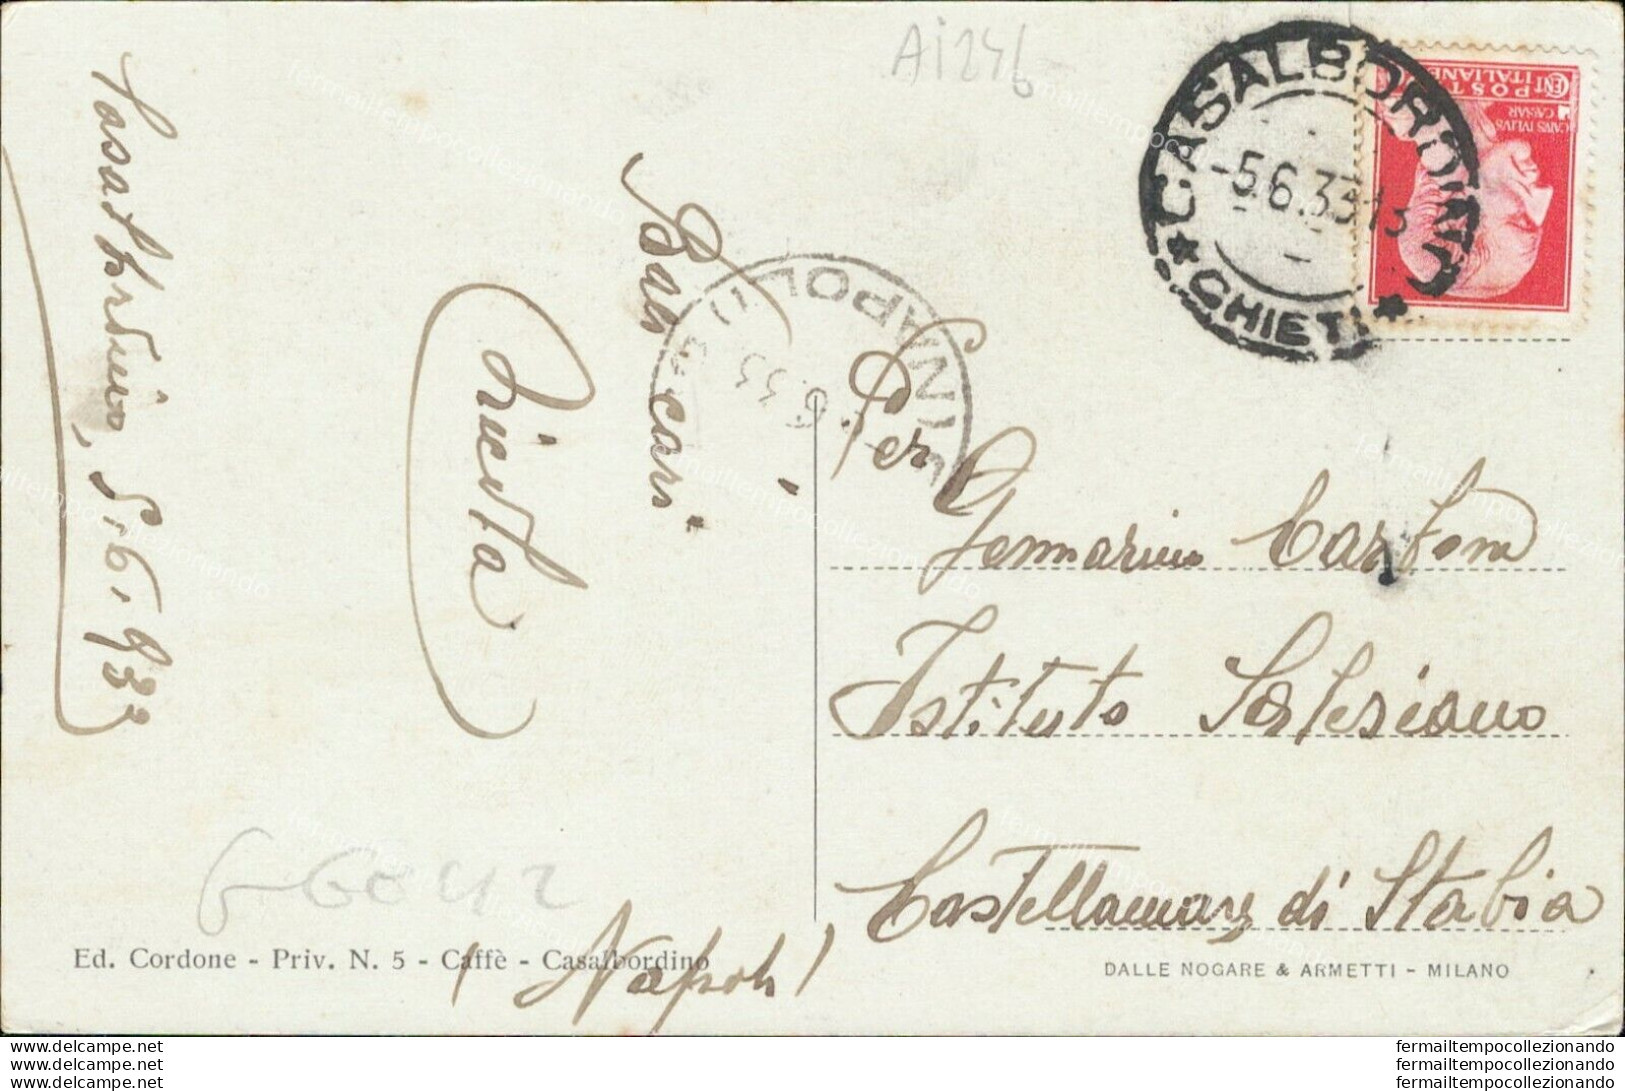 Ai246
CASALBORDINO
-5.6.33.13
★ CHIETI ★
CENT
POSTE
ITALIANE
CAIVS IVLIVS
CAESAR
NAPOLI
6.33
Casalbordino, 5.6.933
Baci cari
Per
Gennarino
Istituto Salesiano
Castellamare di Stabia
(Napoli)
66042
Ed. Cordone - Priv. N. 5 - Caffè - Casalbordino
DALLE NOGARE & ARMETTI - MILANO
www.delcampe.net
www.delcampe.net
www.delcampe.net
fermailtempocollezionando
fermailtempocollezionando
fermailtempocollezionando